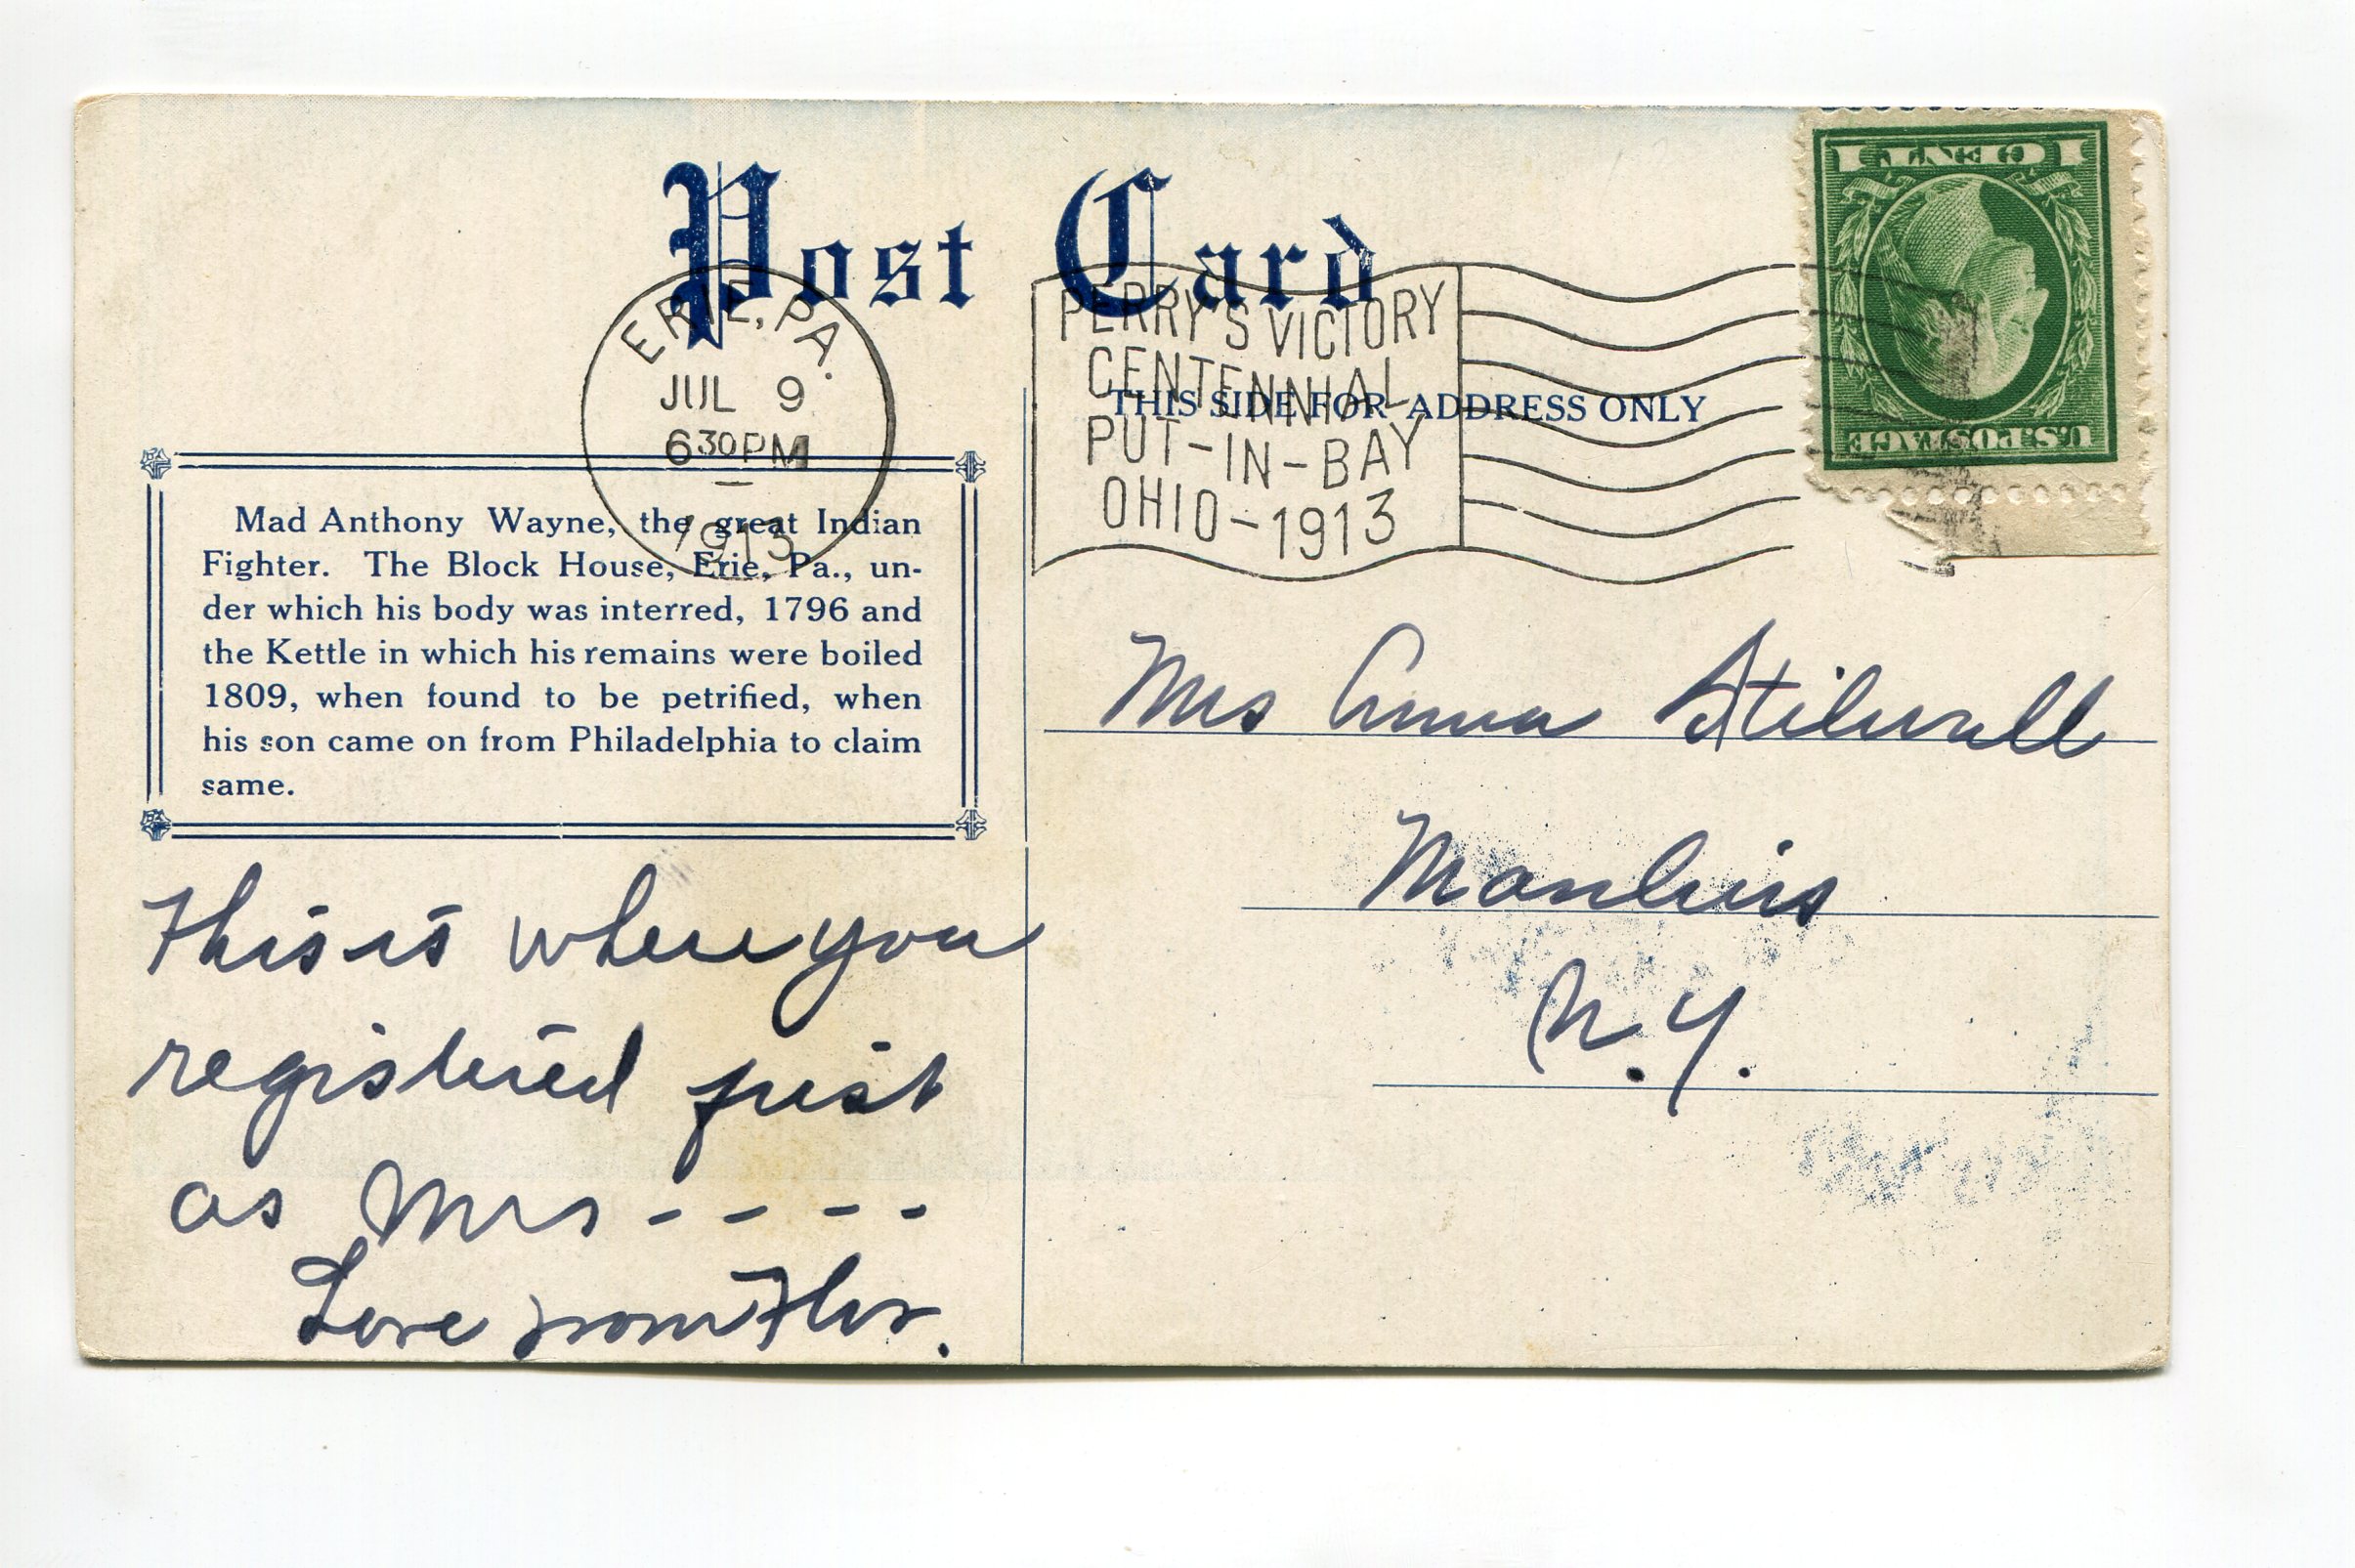 Post Card
ERIE, PA.
JUL 9
6 30 PM
1913
PERRY'S VICTORY
CENTENNIAL
PUT-IN-BAY
OHIO-1913
1 CENT 1
U.S. POSTAGE
THIS SIDE FOR ADDRESS ONLY
Mad Anthony Wayne, the great Indian
Fighter. The Block House, Erie, Pa., un-
der which his body was interred, 1796 and
the Kettle in which his remains were boiled
1809, when found to be petrified, when
his son came on from Philadelphia to claim
same.
This is where you
registered just
as Mrs - - - -
Love from Flor.
Mrs Anna Stilwell
Manlius
N.Y.